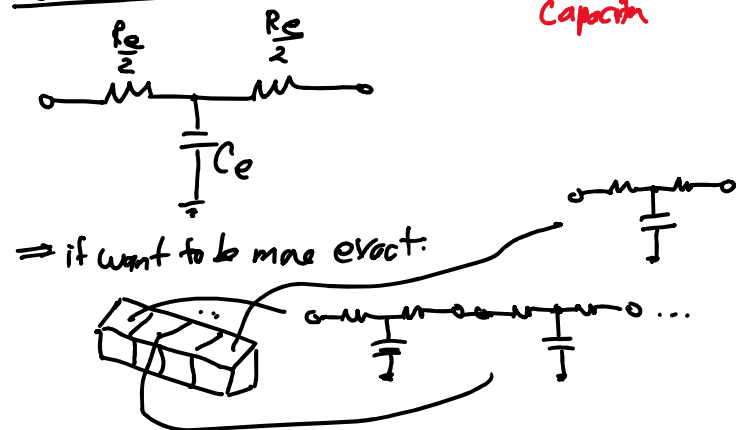 Capacitn
Re/2 Re/2
Ce
⇒ if want to be more exact.
...
...